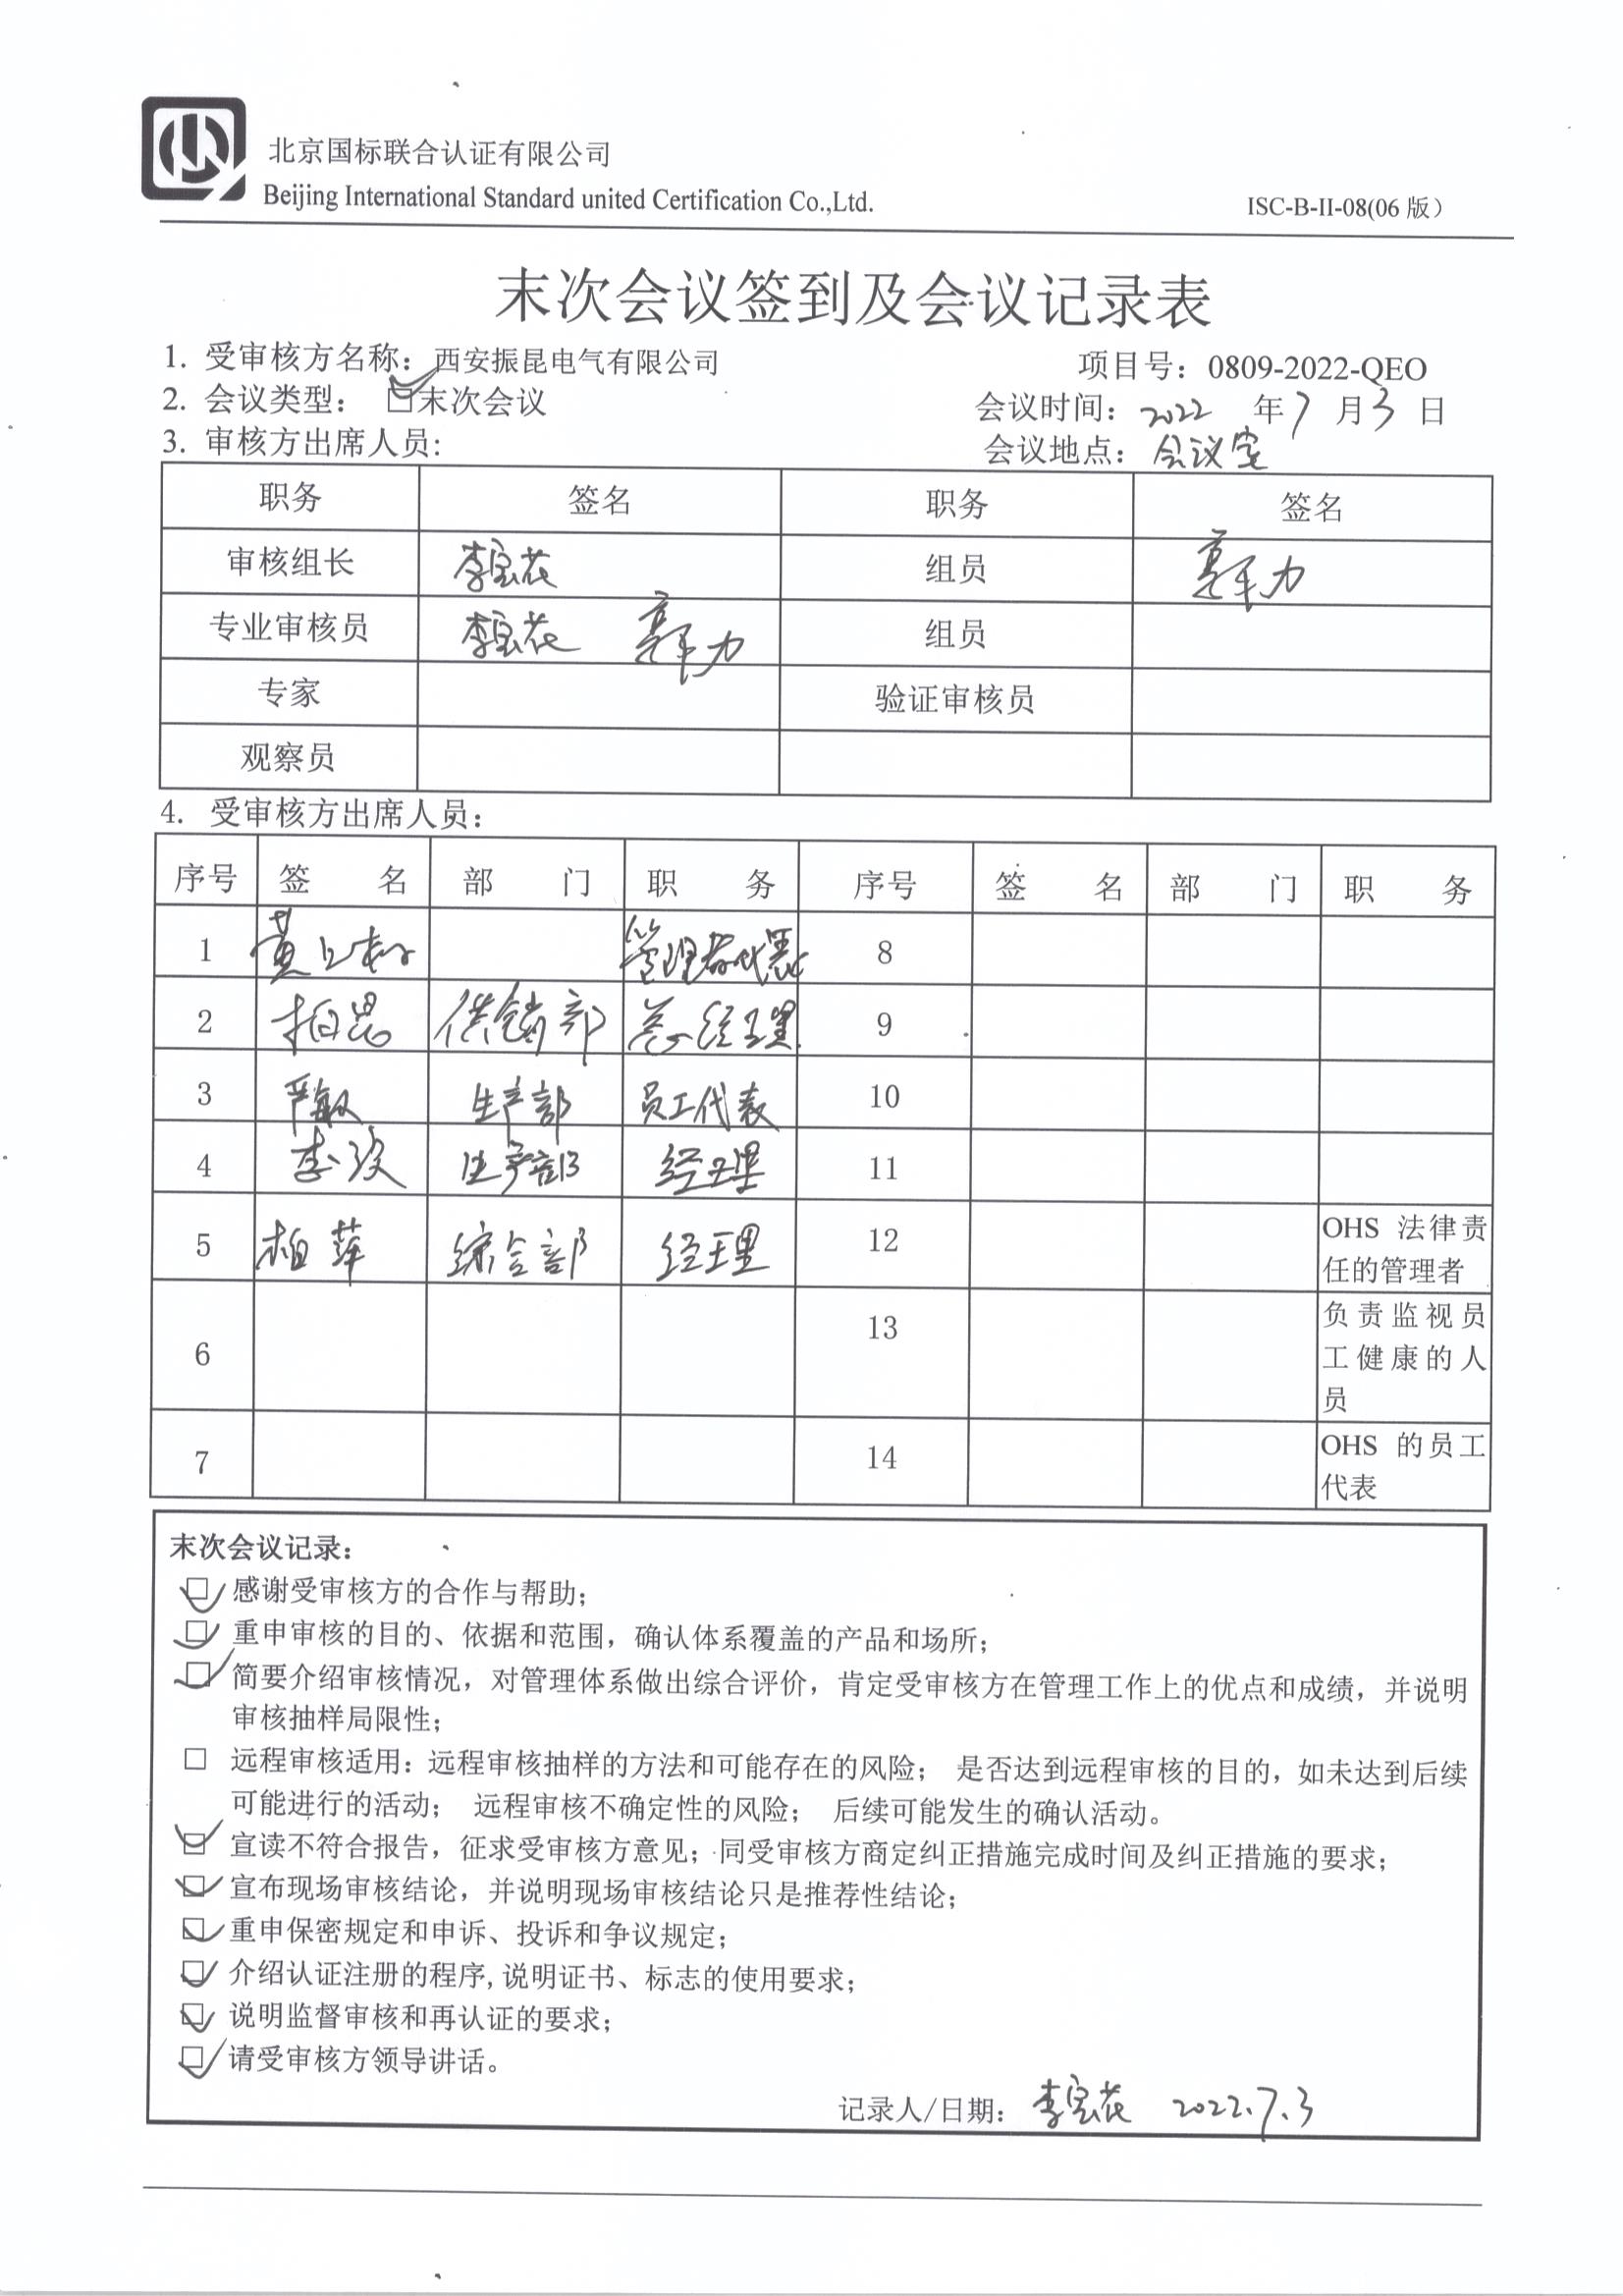 北京国标联合认证有限公司
Beijing International Standard united Certification Co.,Ltd.
ISC-B-II-08(06 版）
末次会议签到及会议记录表
1. 受审核方名称：西安振昆电气有限公司 项目号：0809-2022-QEO
2. 会议类型： □末次会议 会议时间：2022 年 7 月 3 日
3. 审核方出席人员: 会议地点：会议室
职务 签名 职务 签名
审核组长 李宝花 组员
专业审核员 李宝花 组员
专家 验证审核员
观察员
4. 受审核方出席人员：
序号 签 名 部 门 职 务 序号 签 名 部 门 职 务
1 管理者代表 8
2 供销部 总经理 9
3 严敏 生产部 员工代表 10
4 生产部 经理 11
5 柏萍 综合部 经理 12 OHS 法律责
任的管理者
6 13 负责监视员
工健康的人
员
7 14 OHS 的员工
代表
末次会议记录：
□ 感谢受审核方的合作与帮助；
□ 重申审核的目的、依据和范围，确认体系覆盖的产品和场所；
□ 简要介绍审核情况，对管理体系做出综合评价，肯定受审核方在管理工作上的优点和成绩，并说明
审核抽样局限性；
□ 远程审核适用：远程审核抽样的方法和可能存在的风险； 是否达到远程审核的目的，如未达到后续
可能进行的活动； 远程审核不确定性的风险； 后续可能发生的确认活动。
□ 宣读不符合报告，征求受审核方意见；同受审核方商定纠正措施完成时间及纠正措施的要求；
□ 宣布现场审核结论，并说明现场审核结论只是推荐性结论；
□ 重申保密规定和申诉、投诉和争议规定；
□ 介绍认证注册的程序,说明证书、标志的使用要求；
□ 说明监督审核和再认证的要求；
□ 请受审核方领导讲话。
记录人/日期： 李宝花 2022.7.3